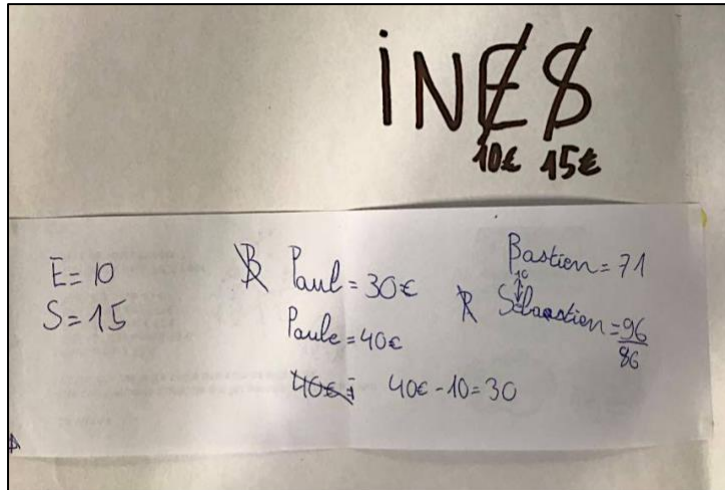 iNES
10€ 15€
E = 10
S = 15
Paul = 30€
Paule = 40€
40€ - 10 = 30
Bastien = 71
10
Sébastien = 96
86